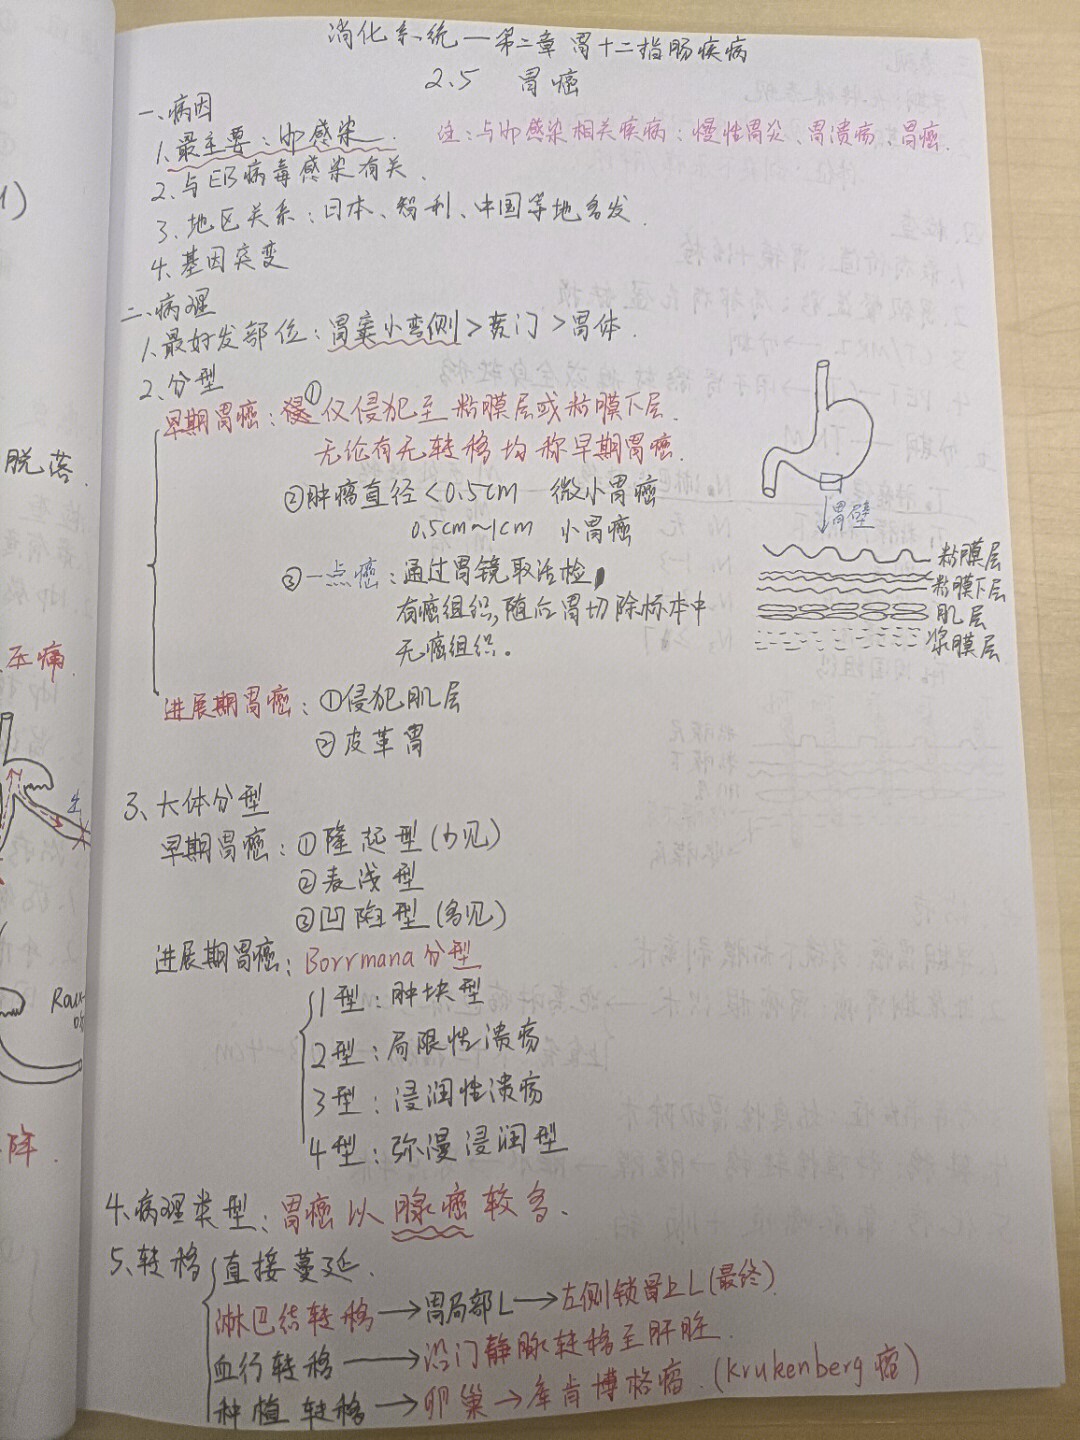 消化系统—第二章 胃十二指肠疾病
2.5 胃癌
一、病因
1、最主要：Hp感染.
注：与Hp感染相关疾病：慢性胃炎、胃溃疡、胃癌.
2、与EB病毒感染有关.
3、地区关系：日本、智利、中国等地多发.
4、基因突变
二、病理
1、最好发部位：胃窦小弯侧>贲门>胃体.
2、分型
早期胃癌：①仅侵犯至粘膜层或粘膜下层.
无论有无转移均称早期胃癌.
②肿瘤直径<0.5cm 微小胃癌
0.5cm~1cm 小胃癌
③一点癌：通过胃镜取活检,
有癌组织,随后胃切除标本中
无癌组织。
进展期胃癌：①侵犯肌层
②皮革胃
胃壁
粘膜层
粘膜下层
肌层
浆膜层
3、大体分型
早期胃癌：①隆起型(少见)
②表浅型
③凹陷型(多见)
进展期胃癌：Borrmana分型
1型：肿块型
2型：局限性溃疡
3型：浸润性溃疡
4型：弥漫浸润型
4、病理类型：胃癌以腺癌较多.
5、转移 直接蔓延.
淋巴结转移→胃局部L→左侧锁骨上L(最终)
血行转移→沿门静脉转移至肝脏.
种植转移→卵巢→库肯博格瘤.(Krukenberg瘤)
脱落.
压痛.
Roux-
降.